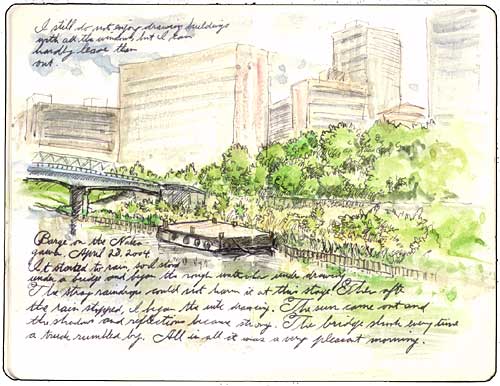 I still do not enjoy drawing buildings
with all the windows but I can
hardly leave them
out.
Barge on the Naka
gawa. April 23, 2004.
It started to rain, so I stood
under a bridge and began the rough watercolor under drawing
The stray raindrops could not harm it at this stage. When
the rain stopped, I began the ink drawing. The sun came out and
the shadows and reflections became strong. The bridge shook every time
a truck rumbled by. All in all it was a very pleasant morning.